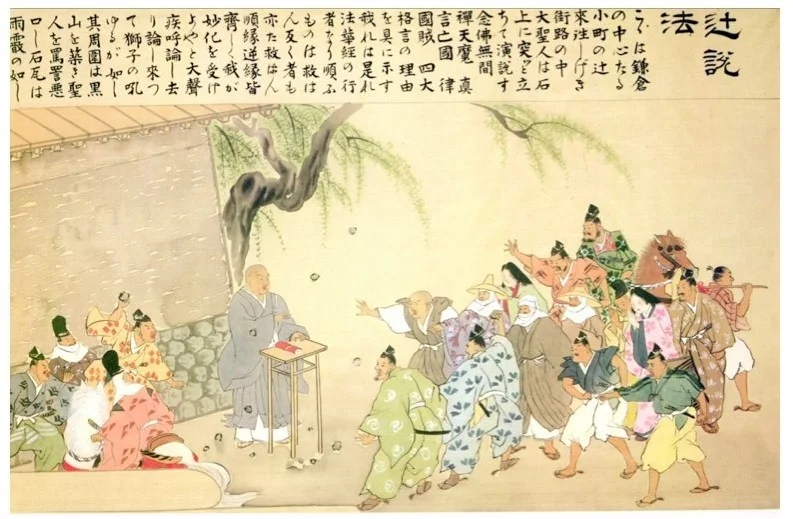 辻説
法
こゝは鎌倉
の中心たる
小町の辻
來往しげき
街路の中
大聖人は石
上に突ッ立
ちて演説す
念佛無間
禪天魔 真
言亡國 律
國賊 四大
格言の理由
を具に示す
我れは是れ
法華經の行
者なり順ふ
ものは救は
ん反く者も
亦た救はん
順縁逆縁皆
齊しく我が
妙化を受け
よやと大聲
疾呼論し去
り論し來つ
て獅子の吼
ゆるが如し
其周圍は黒
山を築き聖
人を罵詈悪
口し石瓦は
雨霰の如し